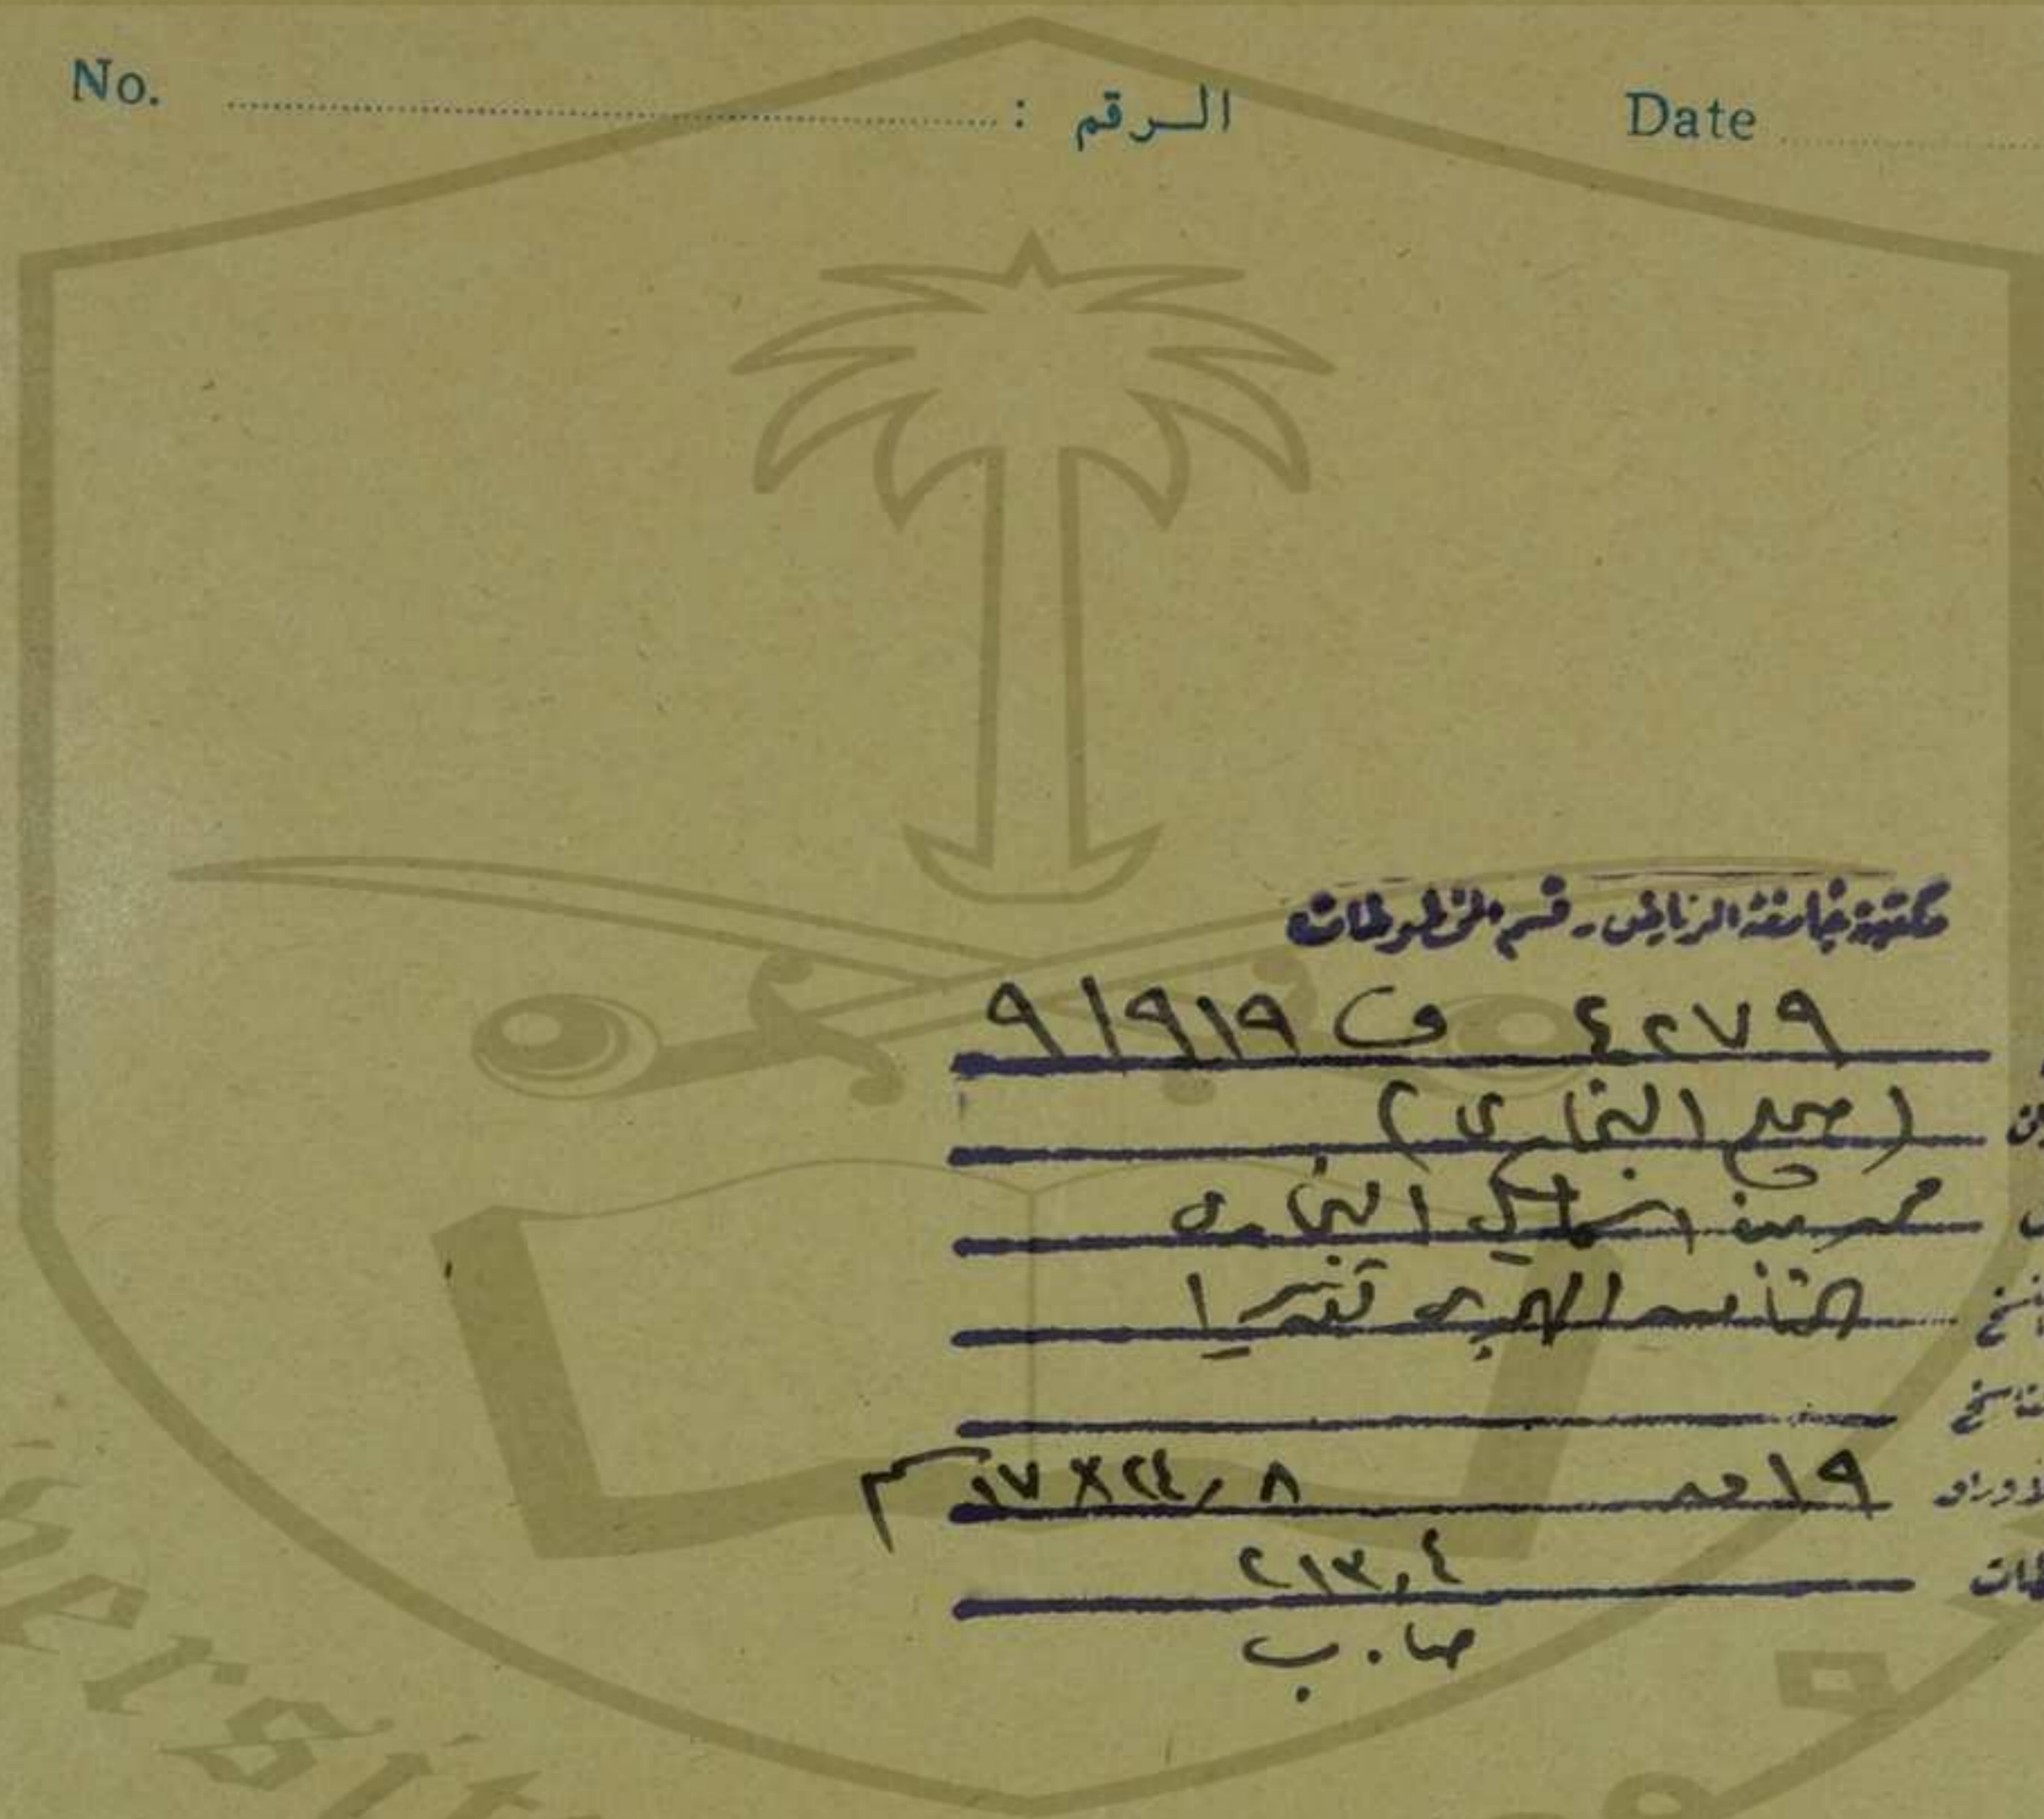 No. الرقم : Date
مكتبة جامعة الرياض - قسم المخطوطات
٤٢٧٩ ف ٩/٩١٩
(صحيح البخاري)
محمد بن اسماعيل البخاري
الثامن الهجري تقديرا
١٩ ق ٢٤,٨ × ١٧ سم
٢١٣,٤
صا. ب